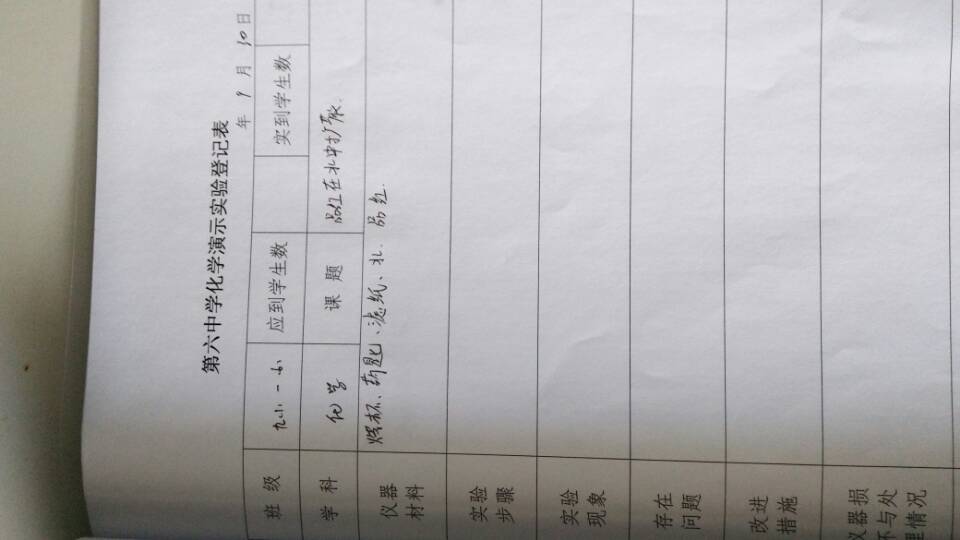 第六中学化学演示实验登记表
年 9 月 30 日
班 级 应到学生数 实到学生数
学 科 化学 课 题 品红在水中扩散
仪器材料 烧杯、药匙、滤纸、水、品红
实验步骤
实验现象
存在问题
改进措施
仪器损坏与处理情况